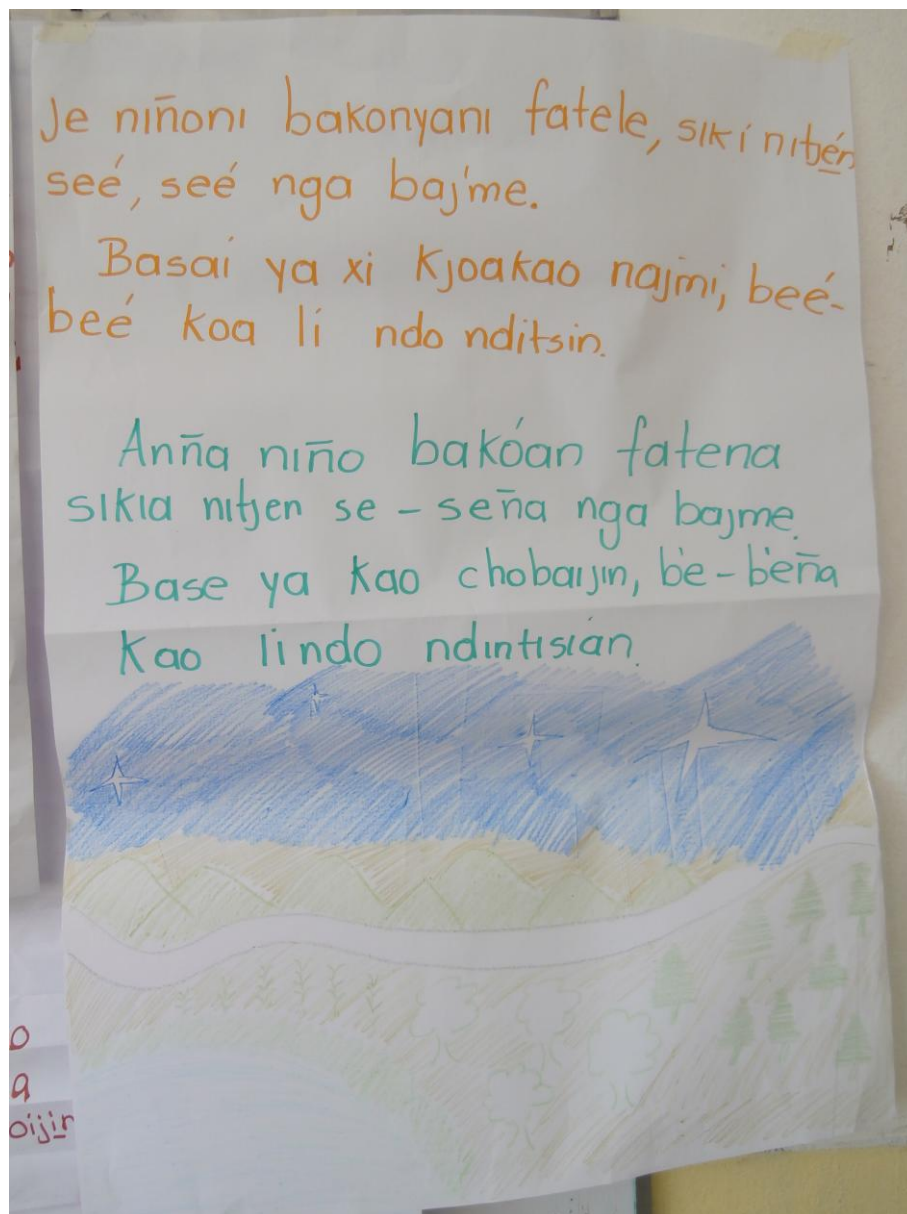 Je niñoni bakonyani fatele, sikí nitjé̱n
seé, seé nga bajme.
Basai ya xi kjoakao najmi, beé-
beé koa li ndo nditsin.
Anña niño bakóan fatena
sikia nitjen se-seña nga bajme.
Base ya kao chobaijin, be-beña
kao lindo ndintisian.
o
a
oiji̱n